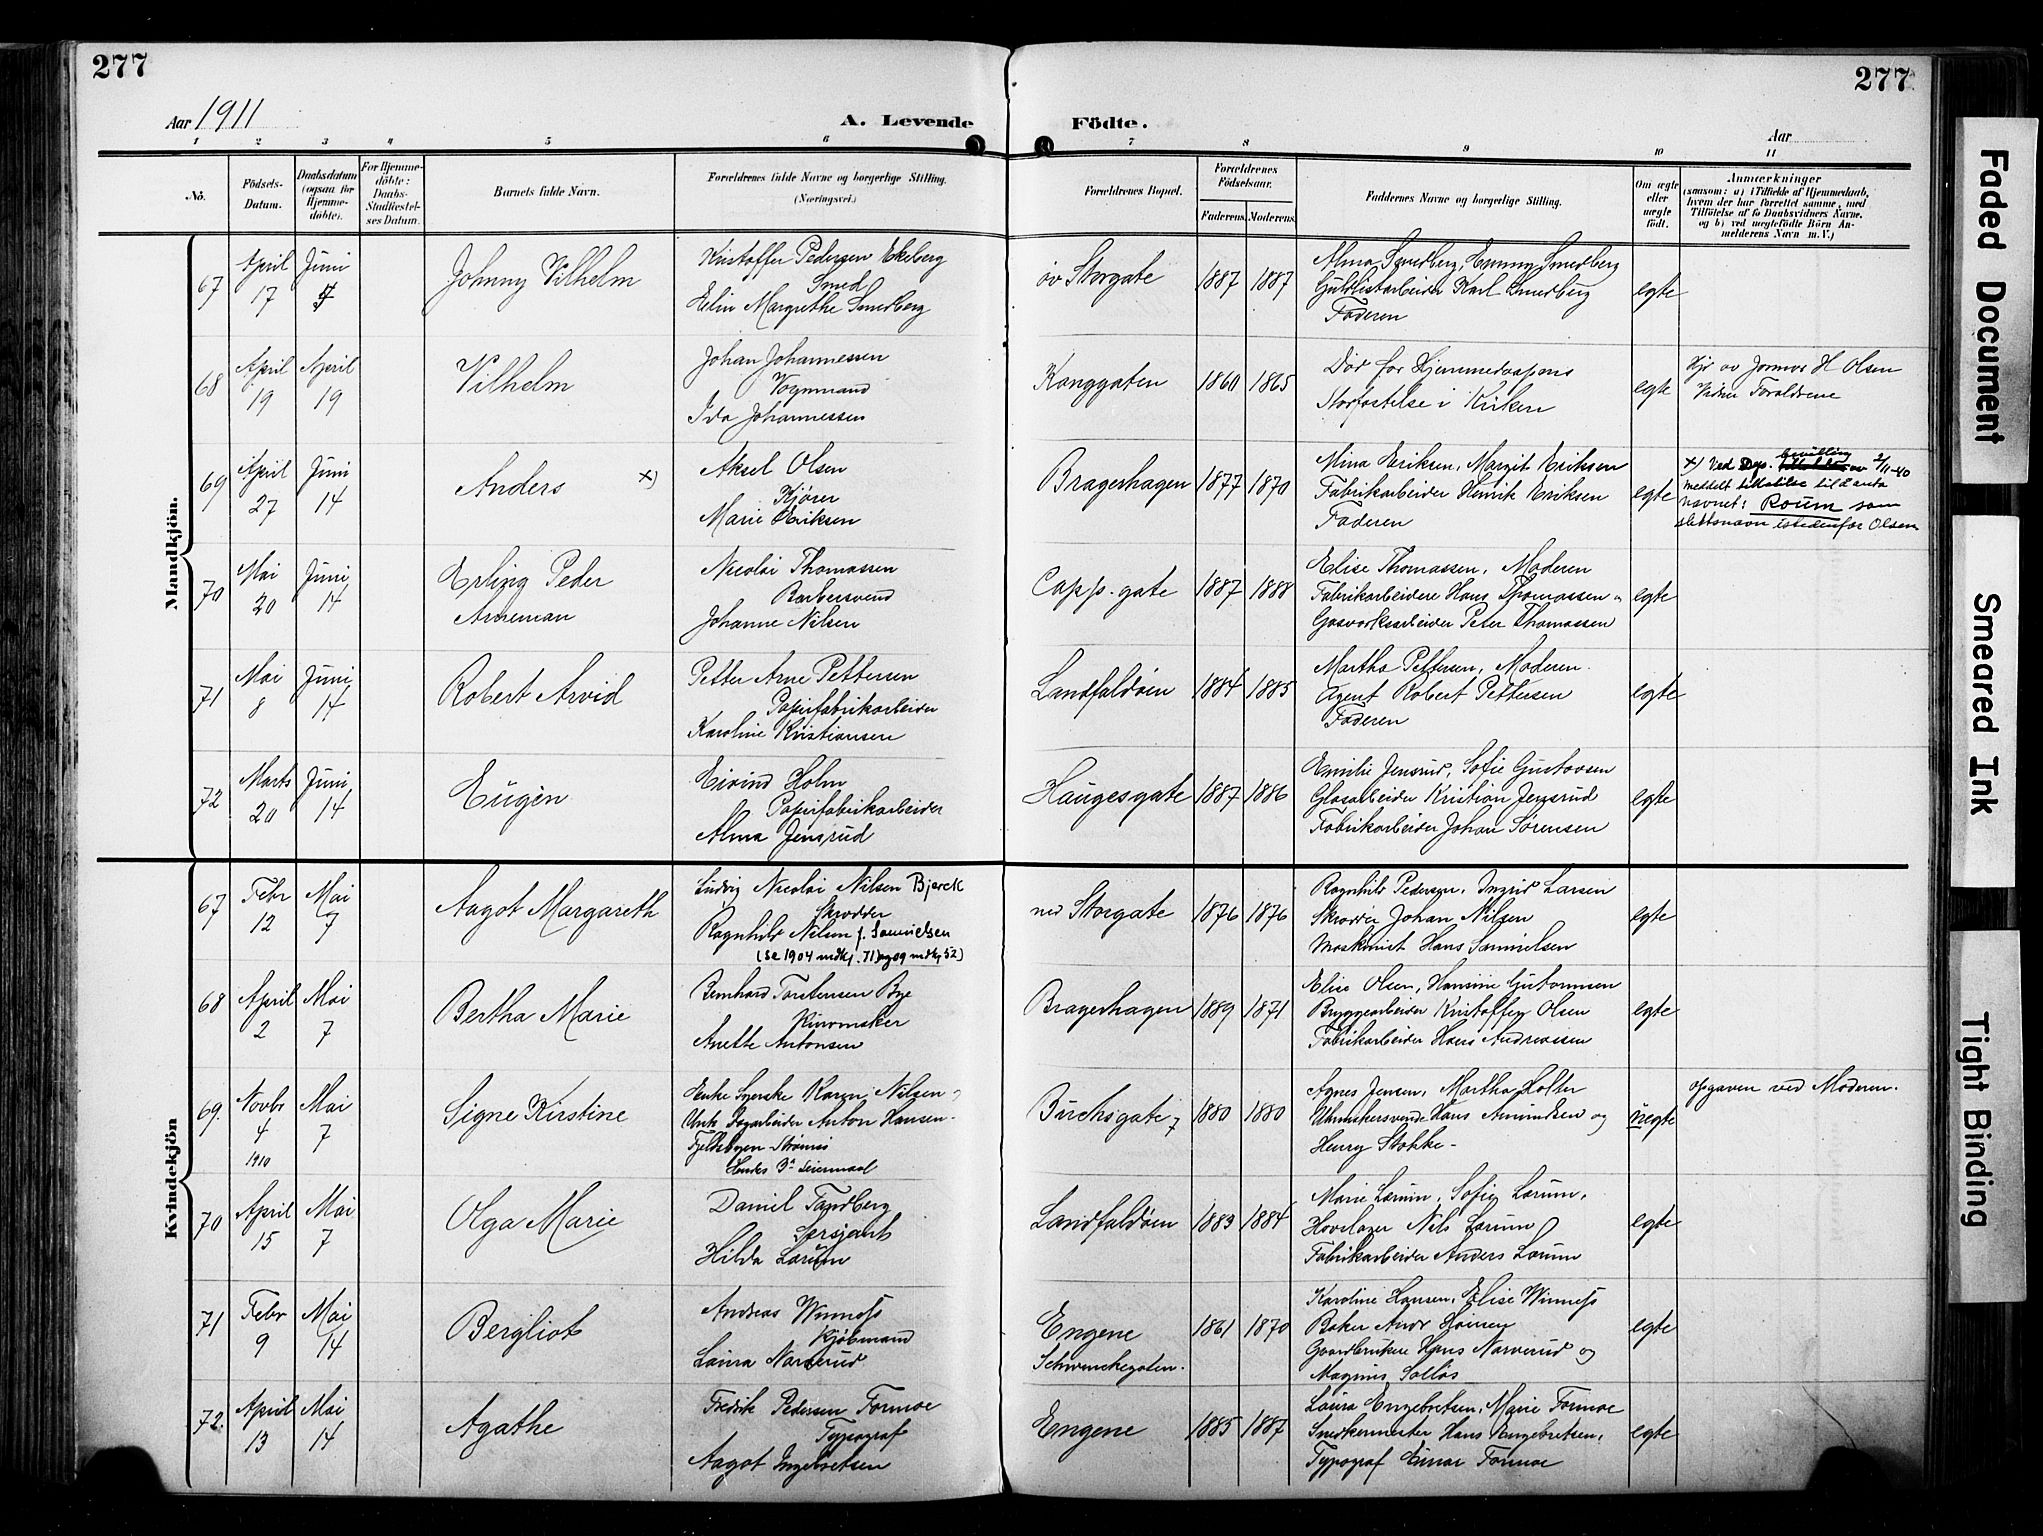 277
277
Aar 1911
A. Levende Födte.
Aar
1 2 3 4 5 6 7 8 9 10 11
No.
Födsels-Datum.
Daabsdatum (ogsaa for Hjemme-döbte).
For Hjemme-döbte: Daabs-Stadfæstel-ses Datum.
Barnets fulde Navn.
Forældrenes fulde Navne og borgerlige Stilling. (Næringsvei.)
Forældrenes Bopæl.
Forældrenes Födselsaar.
Faderens. Moderens.
Faddernes Navne og borgerlige Stilling.
Om ægte eller uægte födt.
Anmærkninger
(saasom: a) i Tilfælde af Hjemmedaab, hvem der har forrettet samme, med Tilföielse af to Daabsvidners Navne. og b) ved uægtefödte Börn An-melderens Navn m. V.)
Mandkjön.
67 April 17 Juni 5 Johnny Vilhelm
Kristoffer Pedersen Ekeberg
Smed
Elin Margrethe Smedberg
öv Storgate 1887 1887
Alma Smedberg, Emmy Smedberg
Gulllistarbeider Karl Smedberg
Faderen
egte
68 April 19 April 19 Vilhelm
Johan Johannessen
Vognmand
Ida Johannessen
Konggaten 1860 1865
Död før Hjemmedaapens
Stadfæstelse i Kirken
egte
Hjd av Jormor H Olsen
Vidner Forældrene
69 April 27 Juni 14 Anders x)
Aksel Olsen
Kjører
Marie Eriksen
Bragerhagen 1877 1870
Mina Eriksen, Margit Eriksen
Fabrikarbeider Henrik Eriksen
Faderen
egte
x) Ved Dep. bevilling av 2/11-40
meddelt tillatelse til å anta
navnet: Roum som
slektsnavn istedenfor Olsen
70 Mai 20 Juni 14 Erling Peder
Anneman
Nicolai Thomassen
Barbersvend
Johanne Nilsen
Capp. gate 1887 1888
Elise Thomassen, Moderen
Fabrikarbeidere Hans Thomassen
Gasverksarbeider Peter Thomassen
egte
71 Mai 8 Juni 14 Robert Arvid
Petter Arne Pettersen
Papirfabrikarbeider
Karoline Kristiansen
Landfaldøen 1884 1885
Martha Pettersen, Moderen.
Agent Robert Pettersen
Faderen
egte
72 Marts 20 Juni 14 Eugèn
Eivind Holm
Papirfabrikarbeider
Alma Jensrud
Haugesgate 1887 1886
Emilie Jensrud, Sofie Gustavsen
Glasarbeider Kristian Jensrud
Fabrikarbeider Johan Sørensen
egte
Kvindekjön
67 Febr 12 Mai 7 Aagot Margareth
Ludvig Nicolai Nilsen Bjerck
Skrædder
Ragnhild Nilsen f. Samuelsen
(se 1904 mdkj. 71) og 09 mdkj 52)
ned Storgate 1876 1876
Ragnhild Pedersen, Ingrid Larsen
Skrædder Johan Nilsen
Maskinist Hans Samuelsen
egte
68 April 2 Mai 7 Bertha Marie
Bernhard Torstensen Bye
Kurvmaker
Anette Antonsen
Bragerhagen 1889 1871
Elise Olsen, Hansine Guttormsen
Bryggearbeider Kristoffer Olsen
Fabrikarbeider Hans Andreassen
egte
69. Novbr 4 1910 Mai 7 Signe Kirstine
Enke Karen Nilsen
Anton Hansen
Strømsö
Hendes 3die Leiermaal
Birchsgate 7 1880 1880
Agnes Jensen, Martha Holter
Hans Amundsen og
Henry Stokke
uegte
opgaven ved Moderen.
70 April 15 Mai 7 Olga Marie
Daniel Tandberg
Sersjant
Hilda Lærum
Landfaldøen 1883 1884
Marie Lærum, Sofie Lærum,
Nils Lærum
Fabrikarbeider Anders Lærum
egte
71 Febr 9 Mai 14 Bergliot
Andreas Winness
Kjøbmand
Laura Narverud
Engene
Schwenckegaten.
1861 1870
Karoline Hansen, Elise Winness
Baker Andr Hansen
Gaardbruker Hans Narverud og
Magnus Solløs
egte
72. April 13 Mai 14 Agathe
Fredrik Pedersen Formoe
Typograf
Aagot Engebretsen
Engene 1885 1887
Laura Engebretsen, Marie Formoe
Snedkermester Hans Engebretsen,
Typograf Einar Formoe
egte
Faded Document
Smeared Ink
Tight Binding